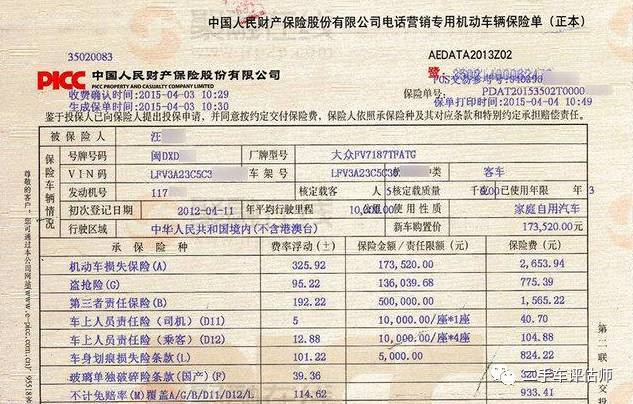 中国人民财产保险股份有限公司电话营销专用机动车辆保险单（正本）
35020083
AEDATA2013Z02
PICC 中国人民财产保险股份有限公司
PICC PROPERTY AND CASUALTY COMPANY LIMITED
收费确认时间:2015-04-03 10:29
生成保单时间:2015-04-03 10:30
保险单号: PDAT20153502T0000
保单打印时间:2015-04-04 10:49
鉴于投保人已向保险人提出投保申请，并同意按约定交付保险费，保险人依照承保险种及其对应条款和特别约定承担赔偿责任。
被保险人 汪
保险车辆情况
号牌号码 闽DXD 厂牌型号 大众FV7187TFATG
VIN码 LFV3A23C5C3 车架号 LFV3A23C5C30 机动车种类 客车
发动机号 117 核定载客 5 人 核定载质量 千克 已使用年限 3 年
初次登记日期 2012-04-11 年平均行驶里程 10,000.00 公里 使用性质 家庭自用汽车
行驶区域 中华人民共和国境内(不含港澳台) 新车购置价 173,520.00元
承保险种 费率浮动(±) 保险金额/责任限额(元) 保险费(元)
机动车损失保险(A) 325.92 173,520.00 2,653.94
盗抢险(G) 95.22 136,039.68 775.39
第三者责任保险(B) 192.22 500,000.00 1,565.22
车上人员责任险（司机）(D11) 5 10,000.00/座*1座 40.70
车上人员责任险（乘客）(D12) 12.88 10,000.00/座*4座 104.88
车身划痕损失险条款(L) 101.22 5,000.00 824.22
玻璃单独破碎险条款(国产)(F) 39.36 320
不计免赔率(M)覆盖A/G/B/D11/D12/L 114.62 933.41
第二联
二手车评估师